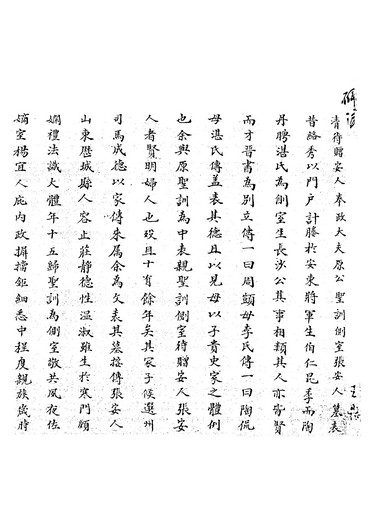 清待贈安人奉政大夫原公聖訓側室張安人墓表 王
昔絡秀以門戶計媵於安東將軍生伯仁昆季而陶
丹聘湛氏為副室生長沙公其事相類其人亦皆賢
而才晉書為別立傳一曰周顗母李氏傳一曰陶侃
母湛氏傳蓋表其德且以見母以子貴史家之體例
也余與原聖訓為中表親聖訓側室待贈安人張安
人者賢明婦人也歿且十有餘年矣其冢子候選州
司馬成德以家傳來屬余為文表其墓按傳安人
山東歷城縣人容止莊靜德性溫淑雖生於寒門頗
嫻禮法識大體年十五歸聖訓為側室敬共夙夜佐
嫡室楊宜人庀內政鉅細悉中程度親族歲時